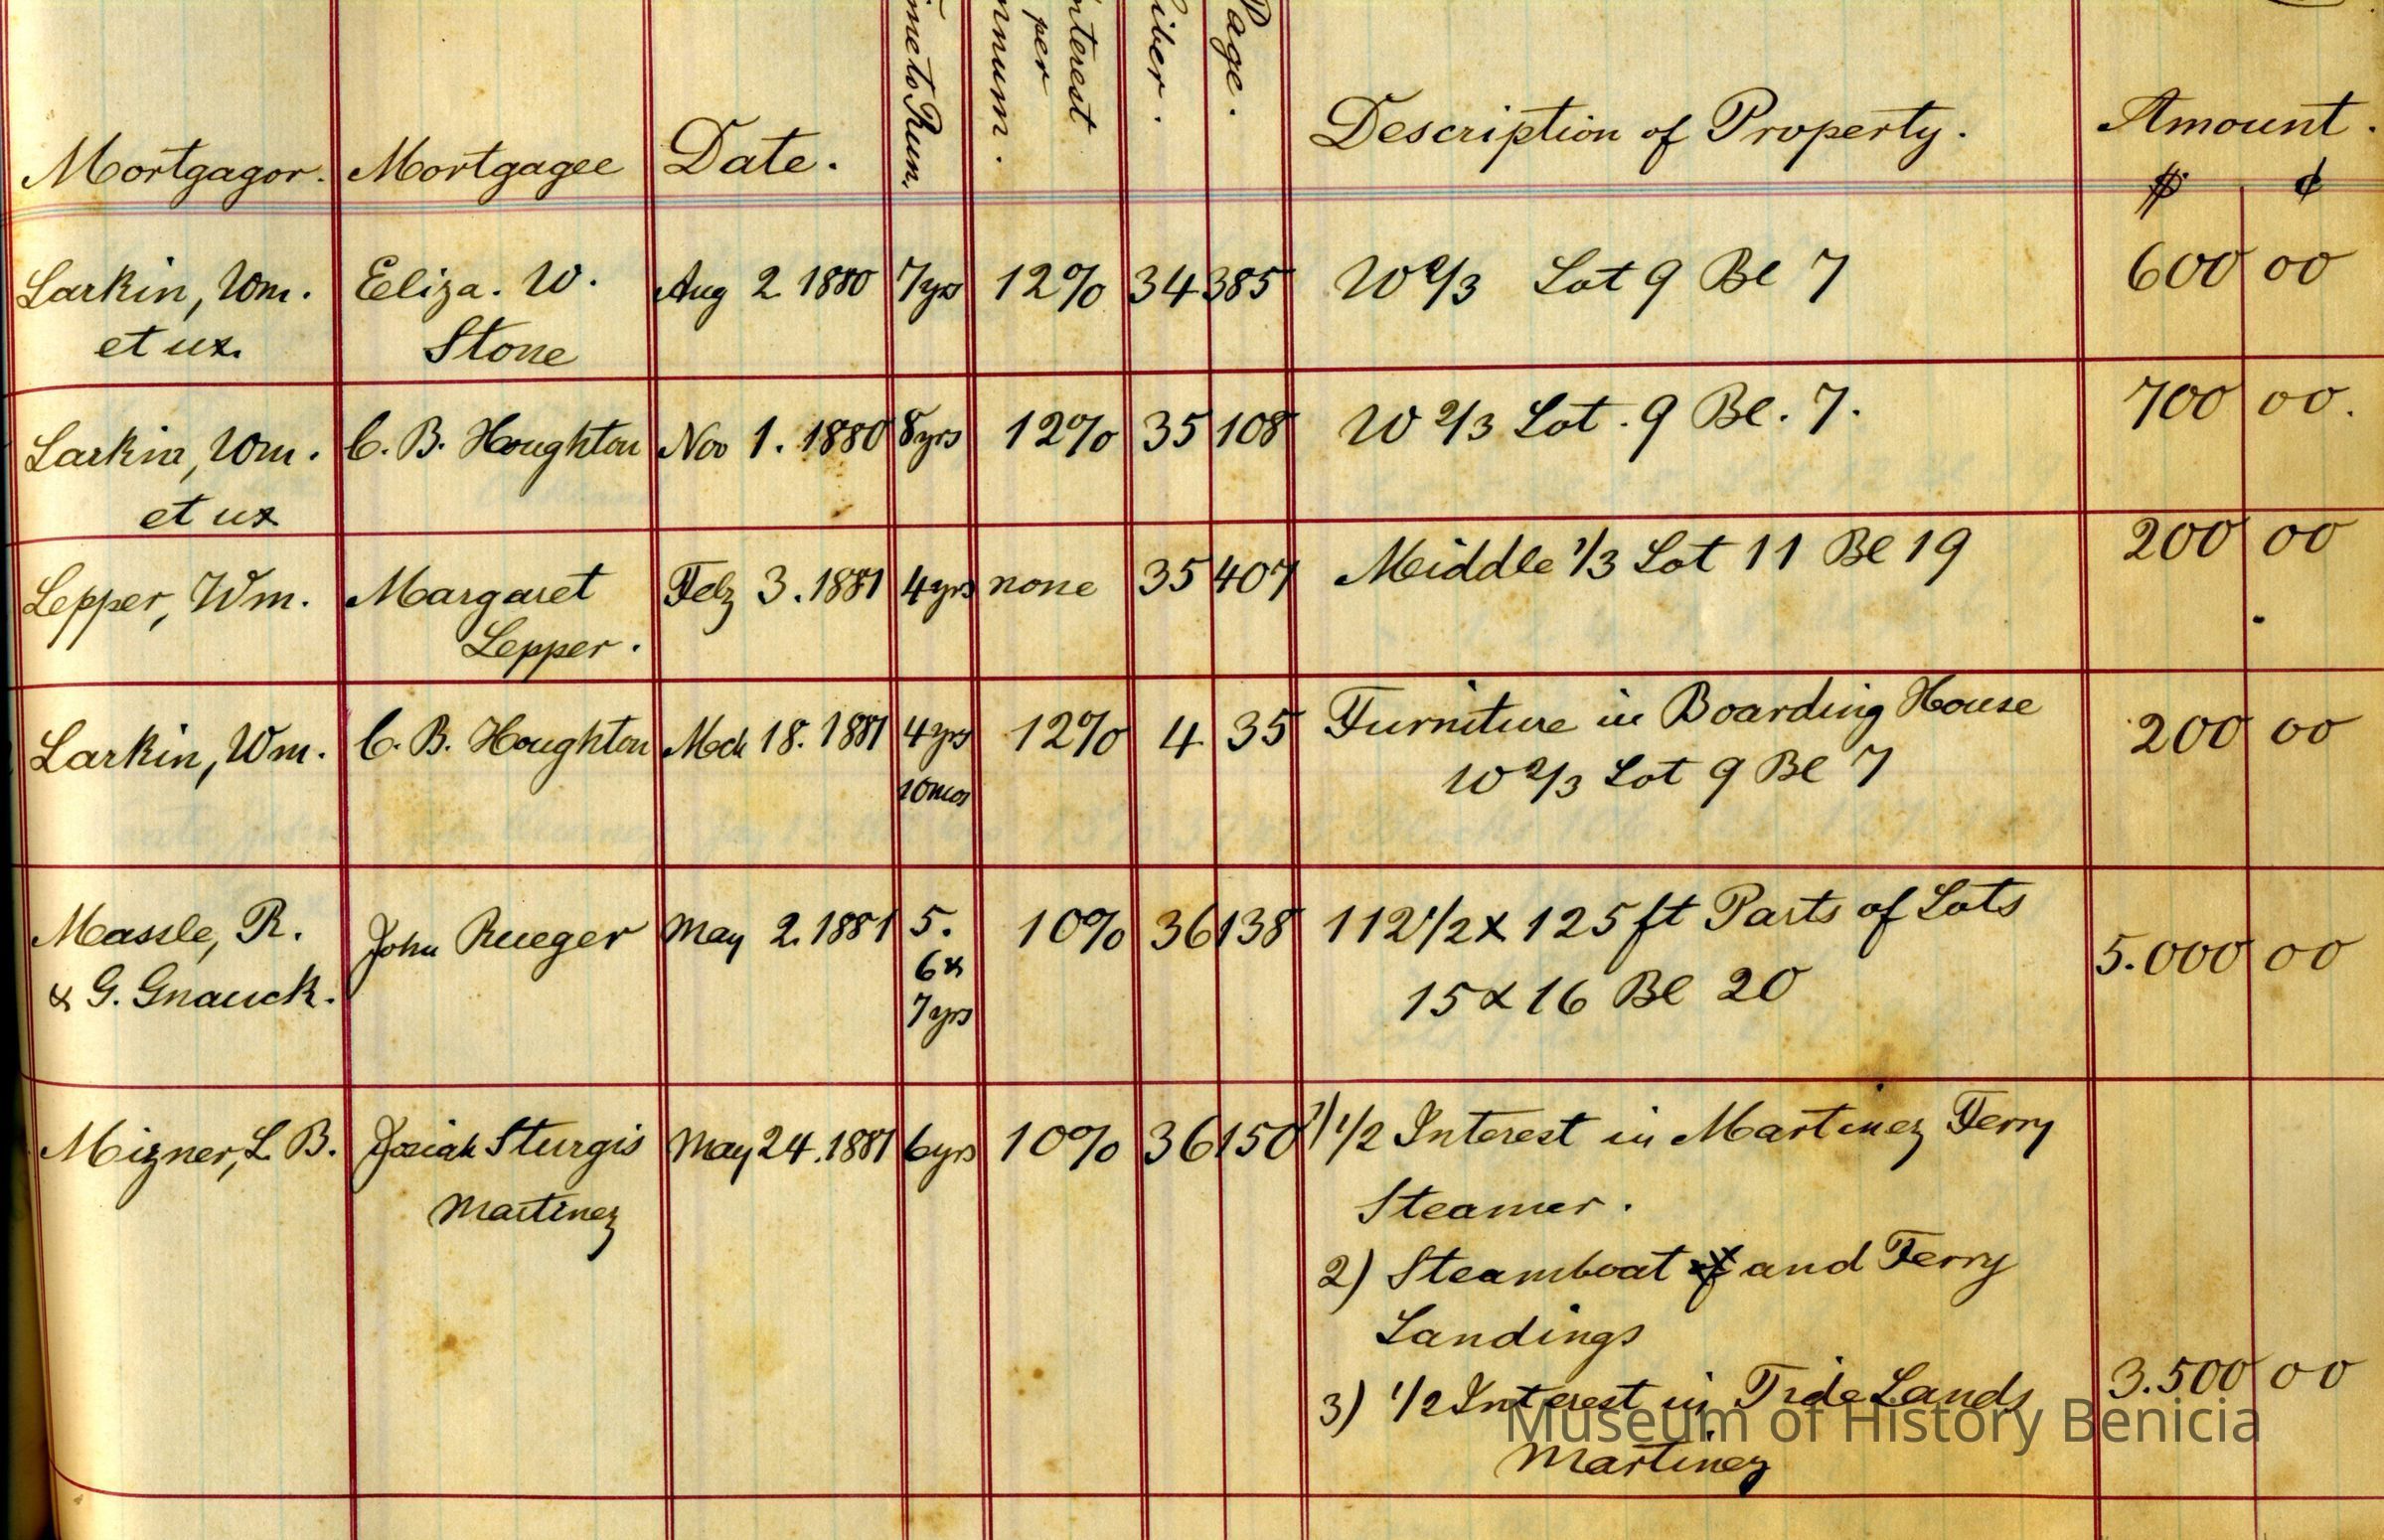 Mortgagor. Mortgagee Date. Time to Run. Interest per Annum. Liber. Page. Description of Property. Amount.
$ ¢
Larkin, Wm. Eliza. W. Aug 2 1880 7yrs 12% 34 385 W 2/3 Lot 9 Bl 7 600 00
et ux. Stone
Larkin, Wm. C. B. Houghton Nov 1. 1880 8yrs 12% 35 108 W 2/3 Lot. 9 Bl. 7. 700 00.
et ux
Lepper, Wm. Margaret Feby 3. 1881 4yrs none 35 407 Middle 1/3 Lot 11 Bl 19 200 00
Lepper.
Larkin, Wm. C. B. Houghton Mch 18. 1881 4yrs 12% 4 35 Furniture in Boarding House 200 00
10mos W 2/3 Lot 9 Bl 7
Massle, R. John Rueger May 2. 1881 5. 10% 36 138 112 1/2 x 125 ft Parts of Lots 5.000 00
& G. Gnauck. 6 & 15 & 16 Bl 20
7yrs
Mizner, L B. Josiah Sturgis May 24. 1881 6yrs 10% 36 150 1) 1/2 Interest in Martinez Ferry
Martinez Steamer.
2) Steamboat and Ferry
Landings
3) 1/2 Interest in Tide Lands 3.500 00
Martinez
Museum of History Benicia